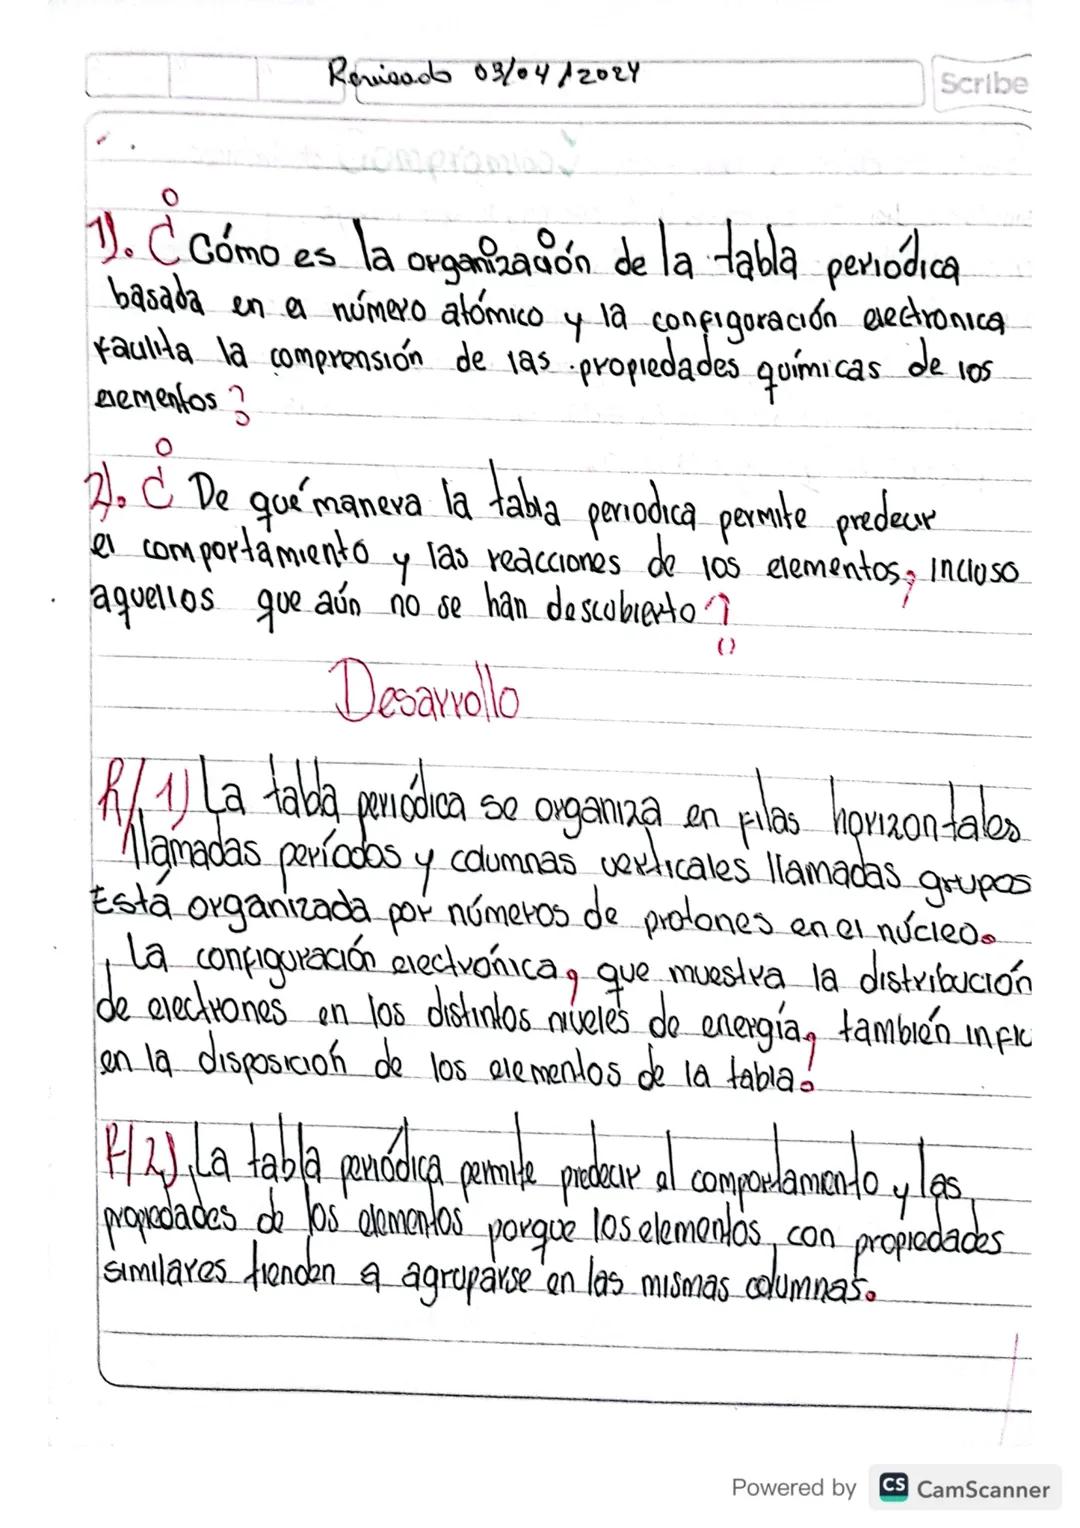 Revisado 03/04/2024
Scribe
1). ¿Cómo es la organización de la tabla periódica
basada en el número atómico y la configoración electronica
facilita la comprensión de las propiedades químicas de los
elementos?
2). ¿De qué manera la tabla periodica permite predecir
el comportamiento y las reacciones de los elementos, incluso
aquellos que aún no se han descubierto?
Desarrollo
R/1) La tabla periódica se organiza en filas horizontales
llamadas períodos y columnas verticales llamadas grupos
Está organizada por números de protones en el núcleo.
La configuración electrónica, que muestra la distribución
de electrones en los distintos niveles de energía, también influ
en la disposición de los elementos de la tabla.
R/2) La tabla periódica permite predecir el comportamento y las
propiedades de los elementos porque los elementos, con propiedades
similares tienden a agruparse en las mismas columnas.
Powered by CS CamScanner